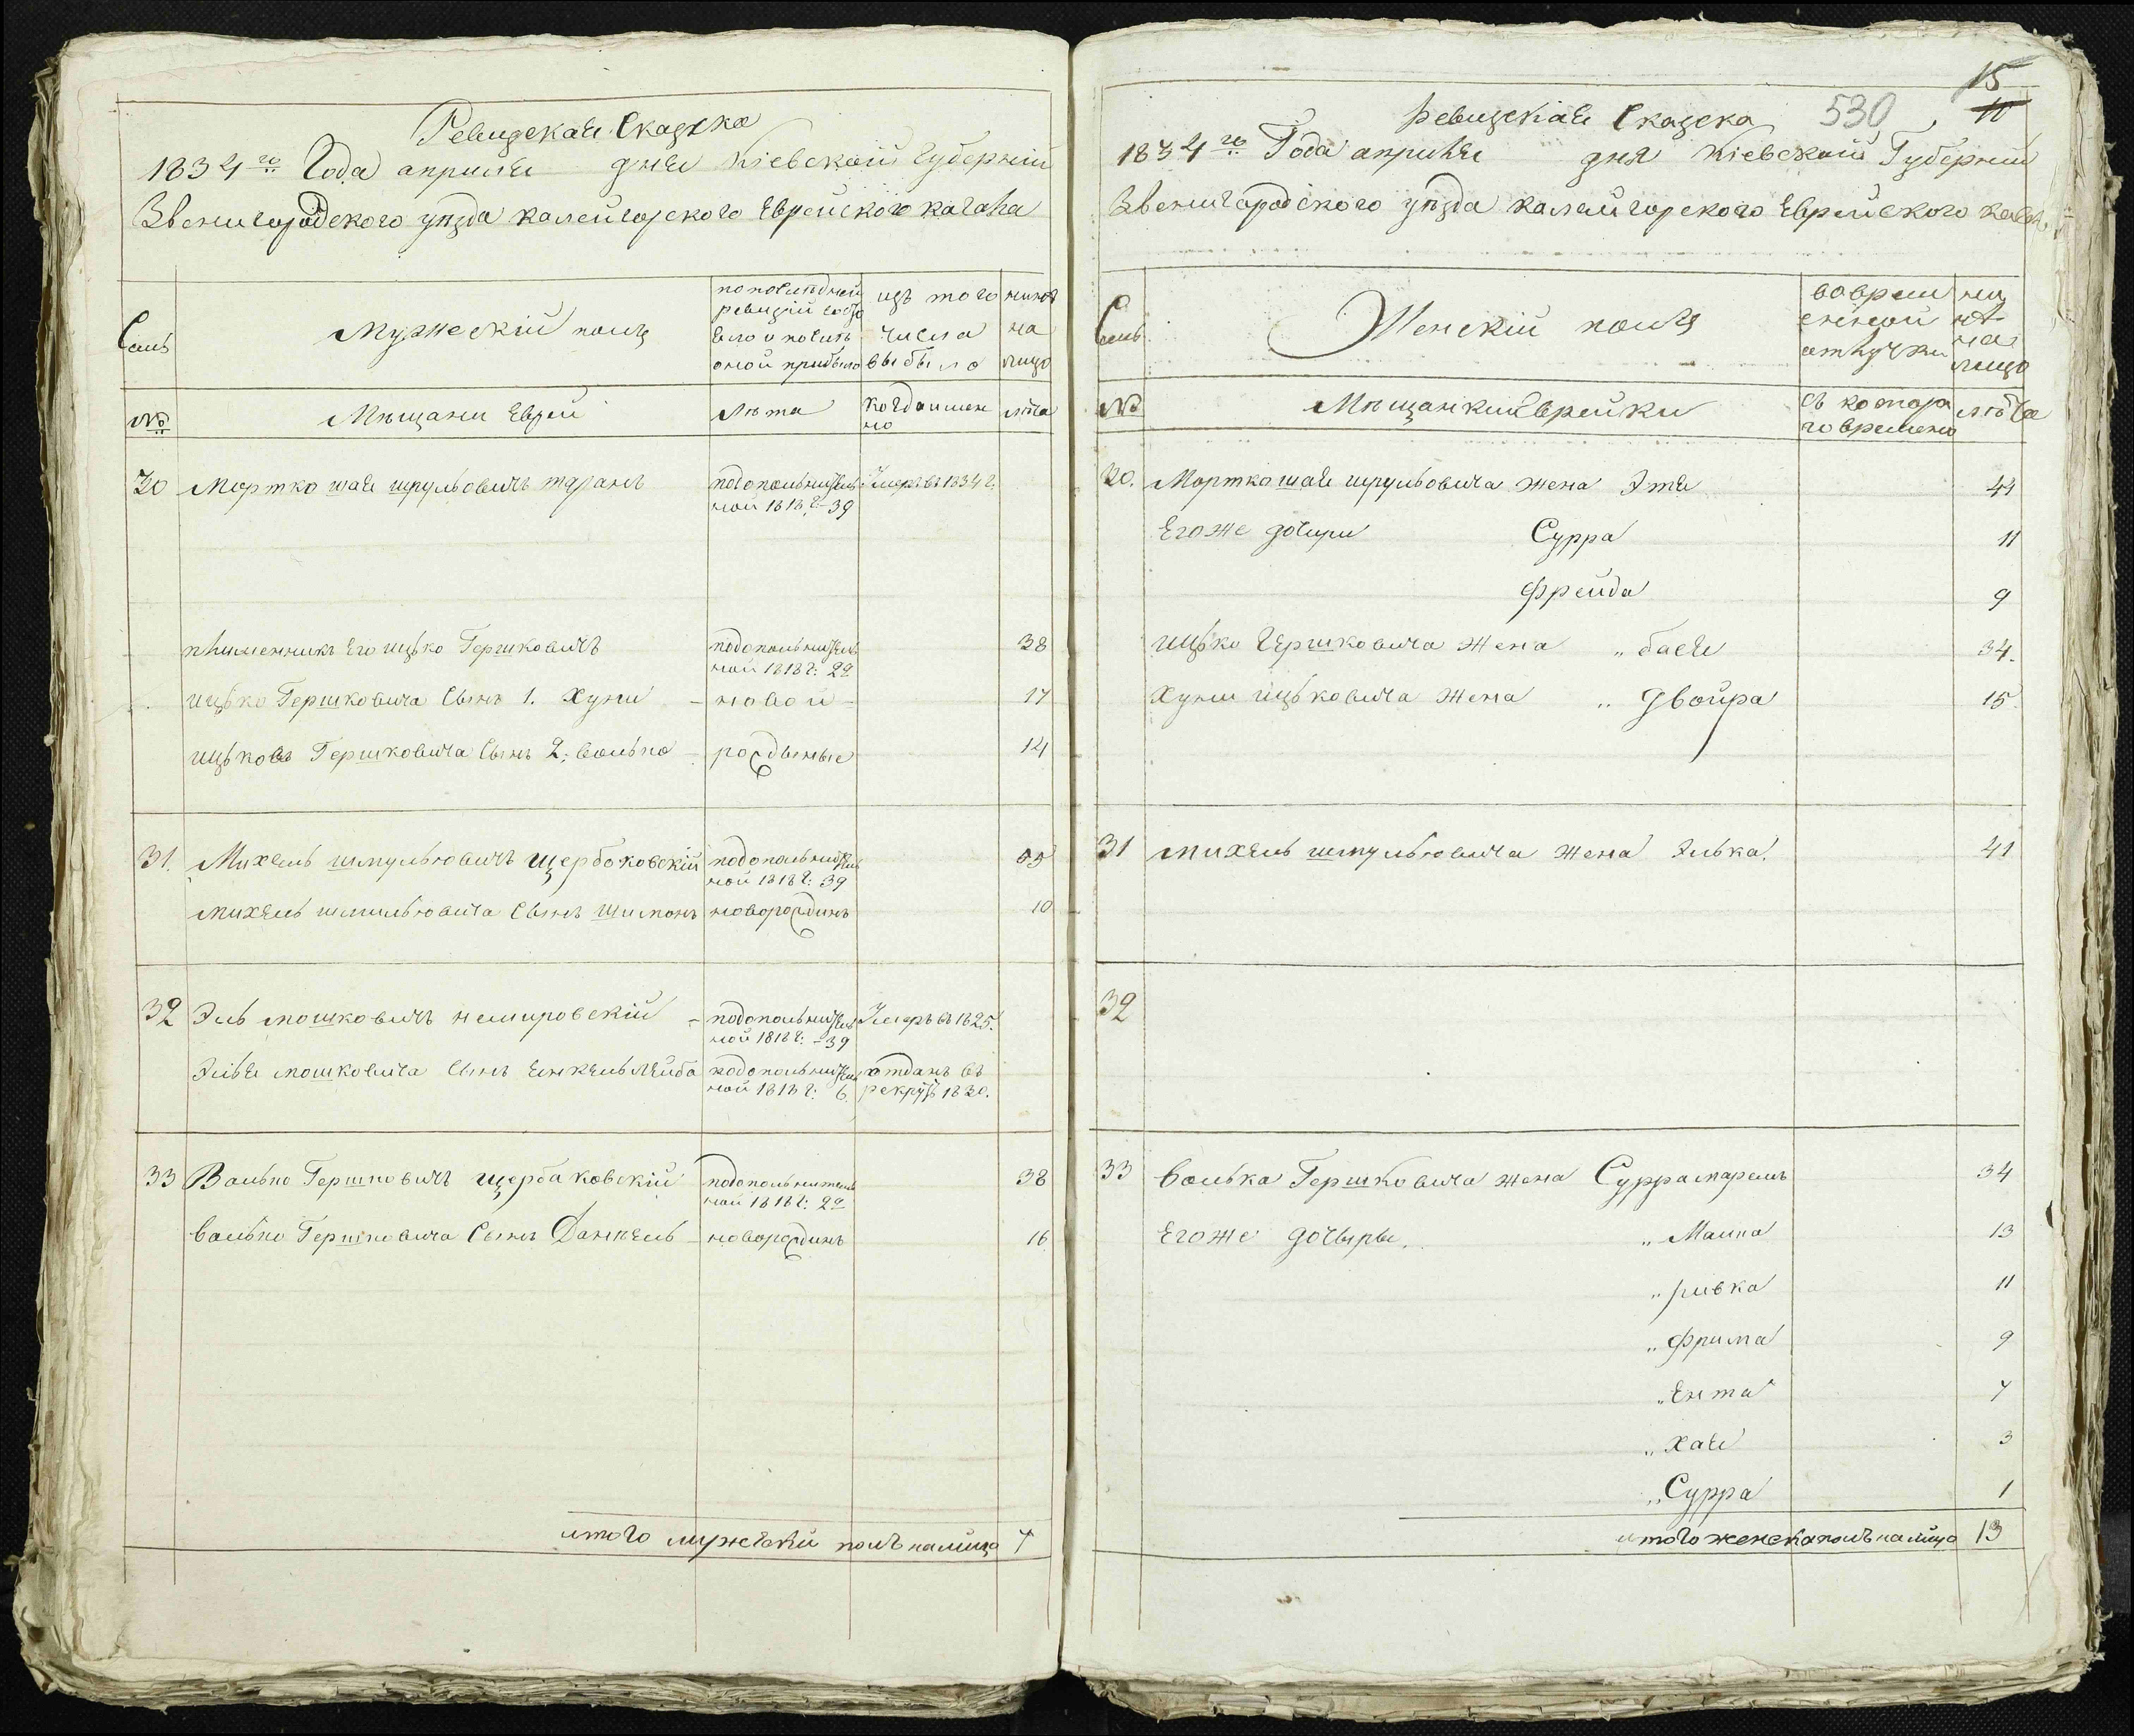 Ревизская Сказка
1834го Года апреля дня Кіевской Губерній
Звенигородского уѣзда калейгорского Еврейского кагала
Семь
Мужескій полъ
по последней
ревизіи состо
было и после
оной прибыло
изъ того
числа
выбыло
ныне
на
лицо
№
Мѣщани Евреи
Лѣта
Когда имен
но
лѣта
30 Мортко шая шрульовичъ таранъ
по дополнитель
ной 1818 г: 39
Умеръ въ 1834 г.
племенникъ Его ицько Гершковичъ
по дополнитель
ной 1818 г: 22
38
ицько Гершковича Сынъ 1. Хуни - новой - 17
ицьковъ Гершковича Сынъ 2; волько рожденые 14
31. Михель шмульовичъ щербаковскій
по дополнитель
ной 1818 г: 39
55
михель шмильовича Сынъ шимонъ новорожденъ 10
32 Эль мошковичъ немировскій
по дополнитель
ной 1818 г: 39
Умеръ въ 1825.
Эльи мошковича Сынъ Енкель Лейба
по дополнитель
ной 1818 г: 6.
отданъ въ
рекруты 1830.
33 Волько Гершковичъ щербаковскій
по дополнитель
ной 1818 г: 22
38
волько Гершковича Сынъ Данкель новорожденъ 16
итого мужескій полъ налицо 7
15
10
530
Ревизская Сказка
1834го Года апреля дня Кіевской Губерній
Звенигородского уѣзда калейгорского Еврейского кагала
Семь
Женскій полъ
во врем
енной
отлучки
ны
не
на
лицо
№
Мѣщанки Еврейки
съ котора
го времени
лѣта
30. Мортка шая шрульовича жена Этя 44
Егоже дочери Сурра 11
Фрейда 9
ицько Гершковича жена „ бася 34.
Хуни ицьковича жена „ Двойра 15.
31 михель шмульовича жена Элька. 41
32
33 волька Гершковича жена Сурра маремъ 34
Егоже дочыры. „ Малка 13
„ ривка 11
„ фрима 9
„ Ента 7
„ Хая 3
„ Сурра 1
итого женска полъ налицо 13